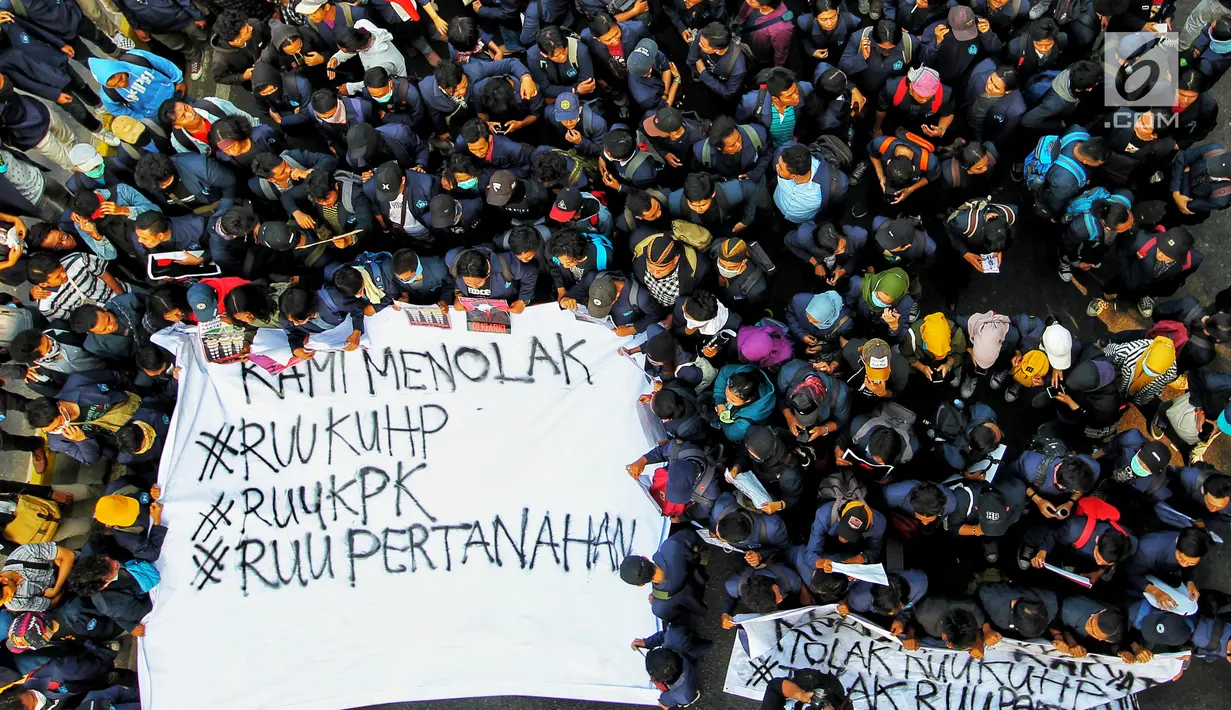 KAMI MENOLAK
#RUU KUHP
#RUU KPK
#RUU PERTANAHAN
OLAK RUU KUHP
AK RUU
6
.COM